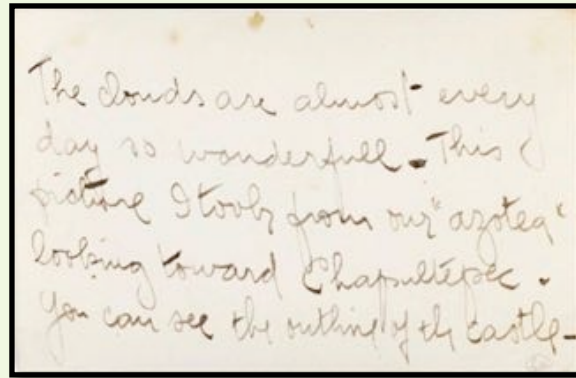 The clouds are almost every
day so wonderfull. This
picture I took from our "azotea"
looking toward Chapultepec.
You can see the outline of the castle—